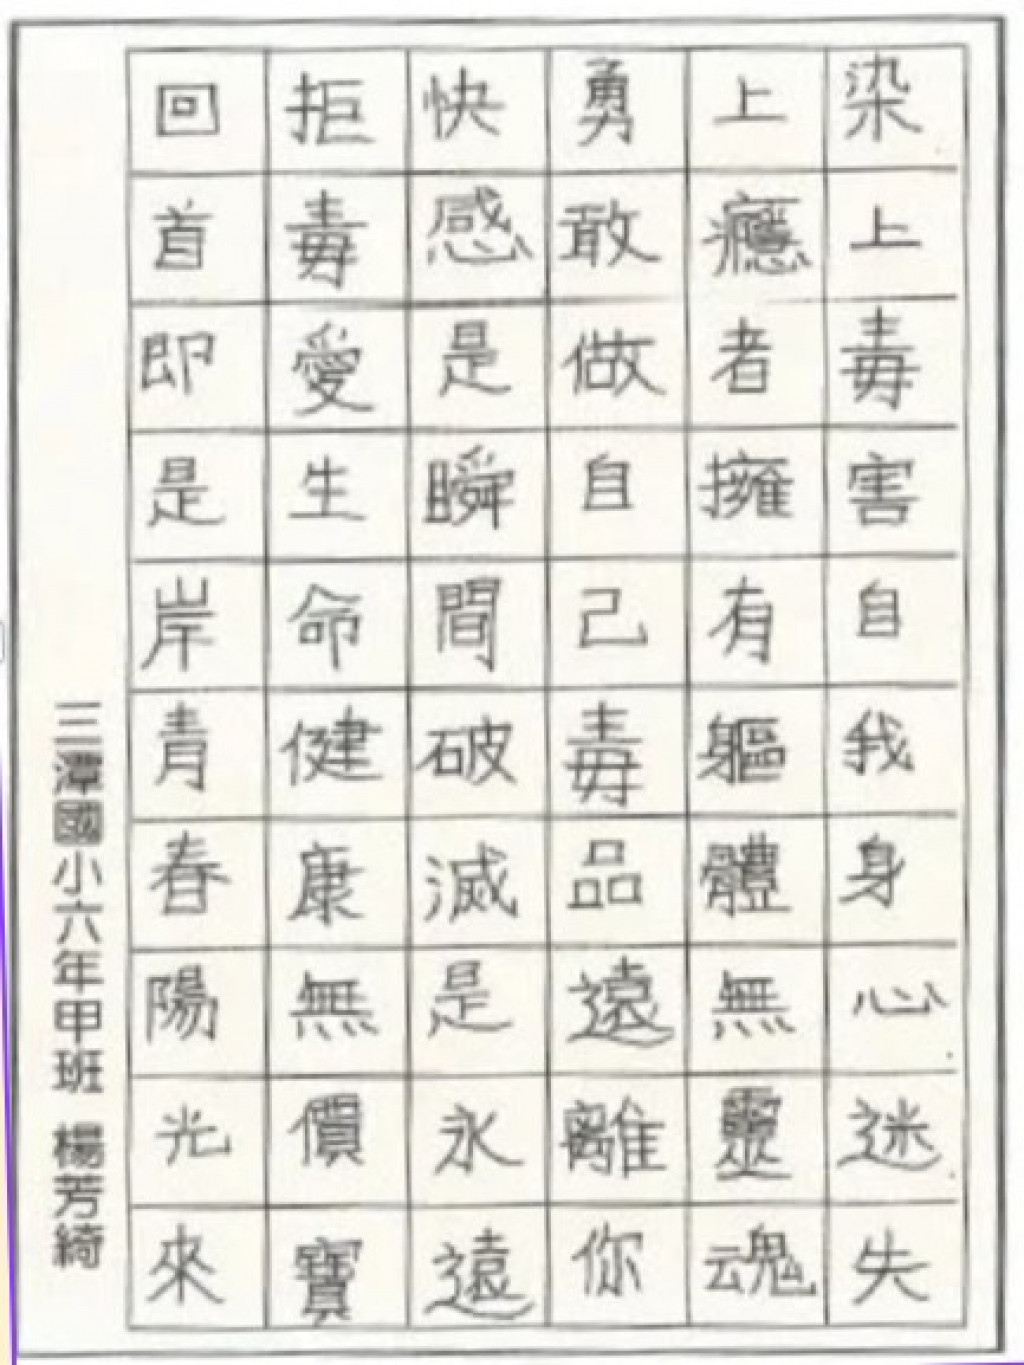 染上毒害自我身心迷失
上癮者擁有軀體無靈魂
勇敢做自己毒品遠離你
快感是瞬間破滅是永遠
拒毒愛生命健康無價寶
回首即是岸青春陽光來
三潭國小六年甲班 楊芳綺